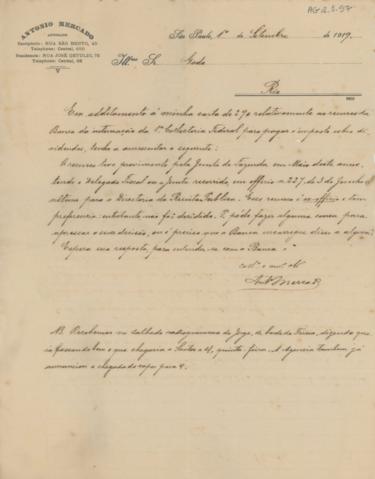 AG 2.2.57
ANTONIO MERCADO
ADVOGADO
Escriptorio: RUA SÃO BENTO, 40
Telephone: Central,
Residencia: RUA JOSÉ GETULIO, 76
Telephone: Central, 66
São Paulo, 1º de Setembro de 1919.
Illmo Sr.
Rio
Em additamento á minha carta de 29 relativamente ao recurso do
Banco da intimação da 1ª Collectoria Federal para pagar o imposto sobre di-
videndos, tenho a accrescentar o seguinte:
O recurso teve provimento pela Junta de Fazenda, em Maio deste anno,
tendo o Delegado Fiscal ou a Junta recorrido, em officio nº 227, de 3 de Junho
ultimo, para o Directoria da Receita Publica. Esse recurso é ex-officio e tem
preferencia, entretanto não foi decidido. E pode fazer alguma cousa para
apressar o sua decisão, ou é preciso que o Banco encarregue disso a alguem?
Espera sua resposta, para entender-se com o Banco o
NB. Recebemos no sabbado radiogramma do Jorge, de bordo do Frisia, dizendo que
ia passando bem e que chegaria a Santos a 4, quinta feira. A Agencia tambem já
annunciou a chegada do vapor para 4.